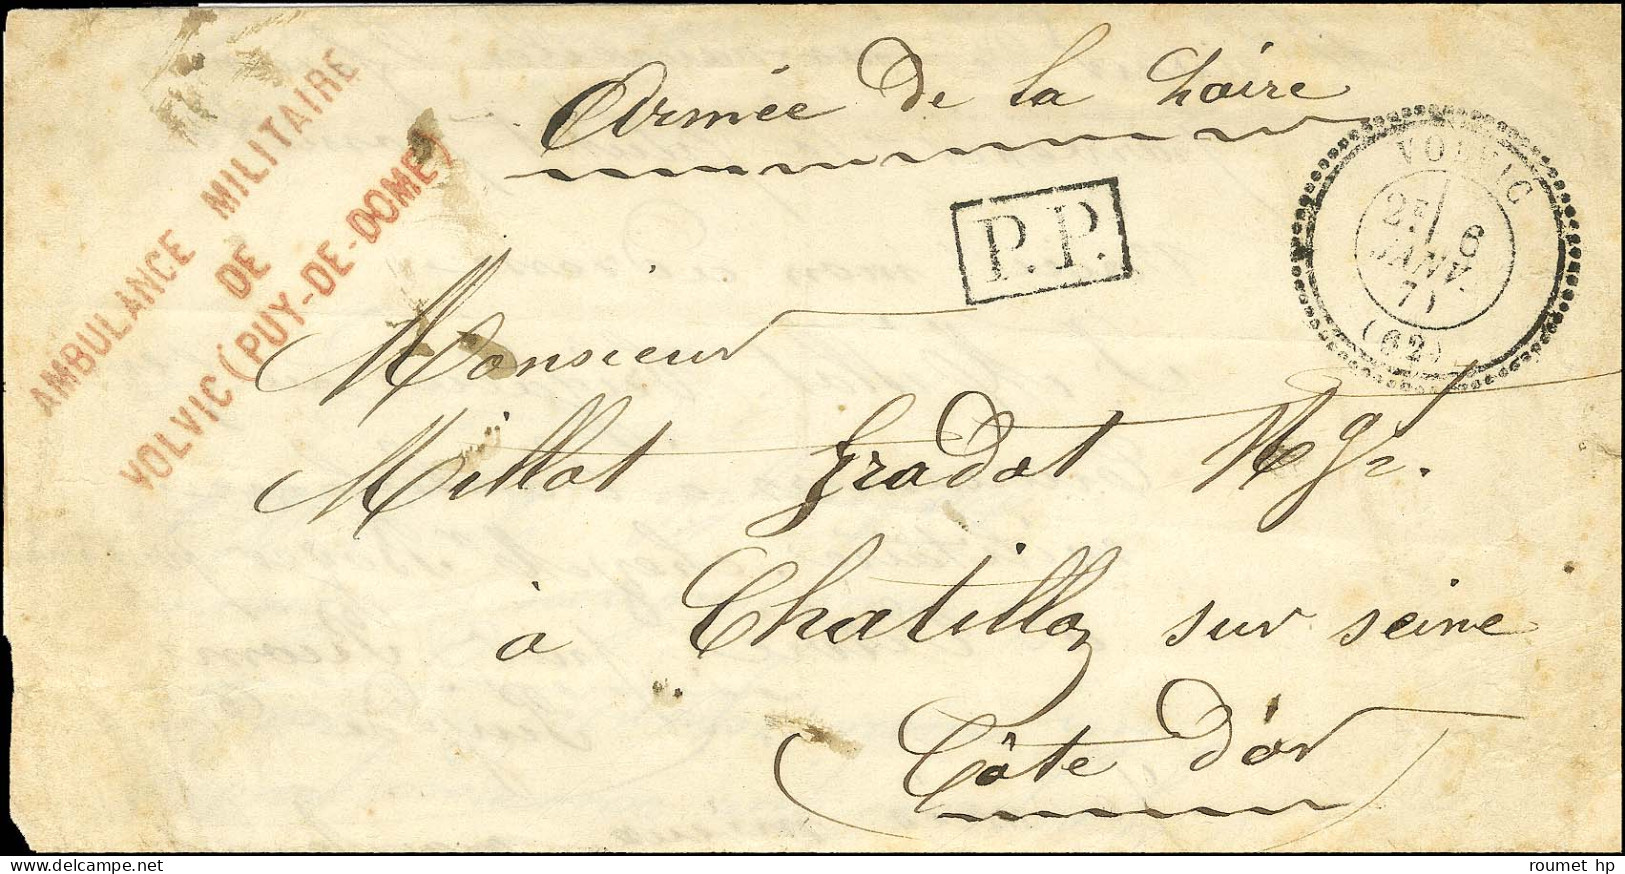 Armée de la Loire
AMBULANCE MILITAIRE
DE
VOLVIC (PUY-DE-DOME)
P.P.
VOLVIC
6
JANV.
71
(62)
Monsieur
Millot Gradot Ngt.
à Chatillon sur seine
Côte d'or
roumet hp